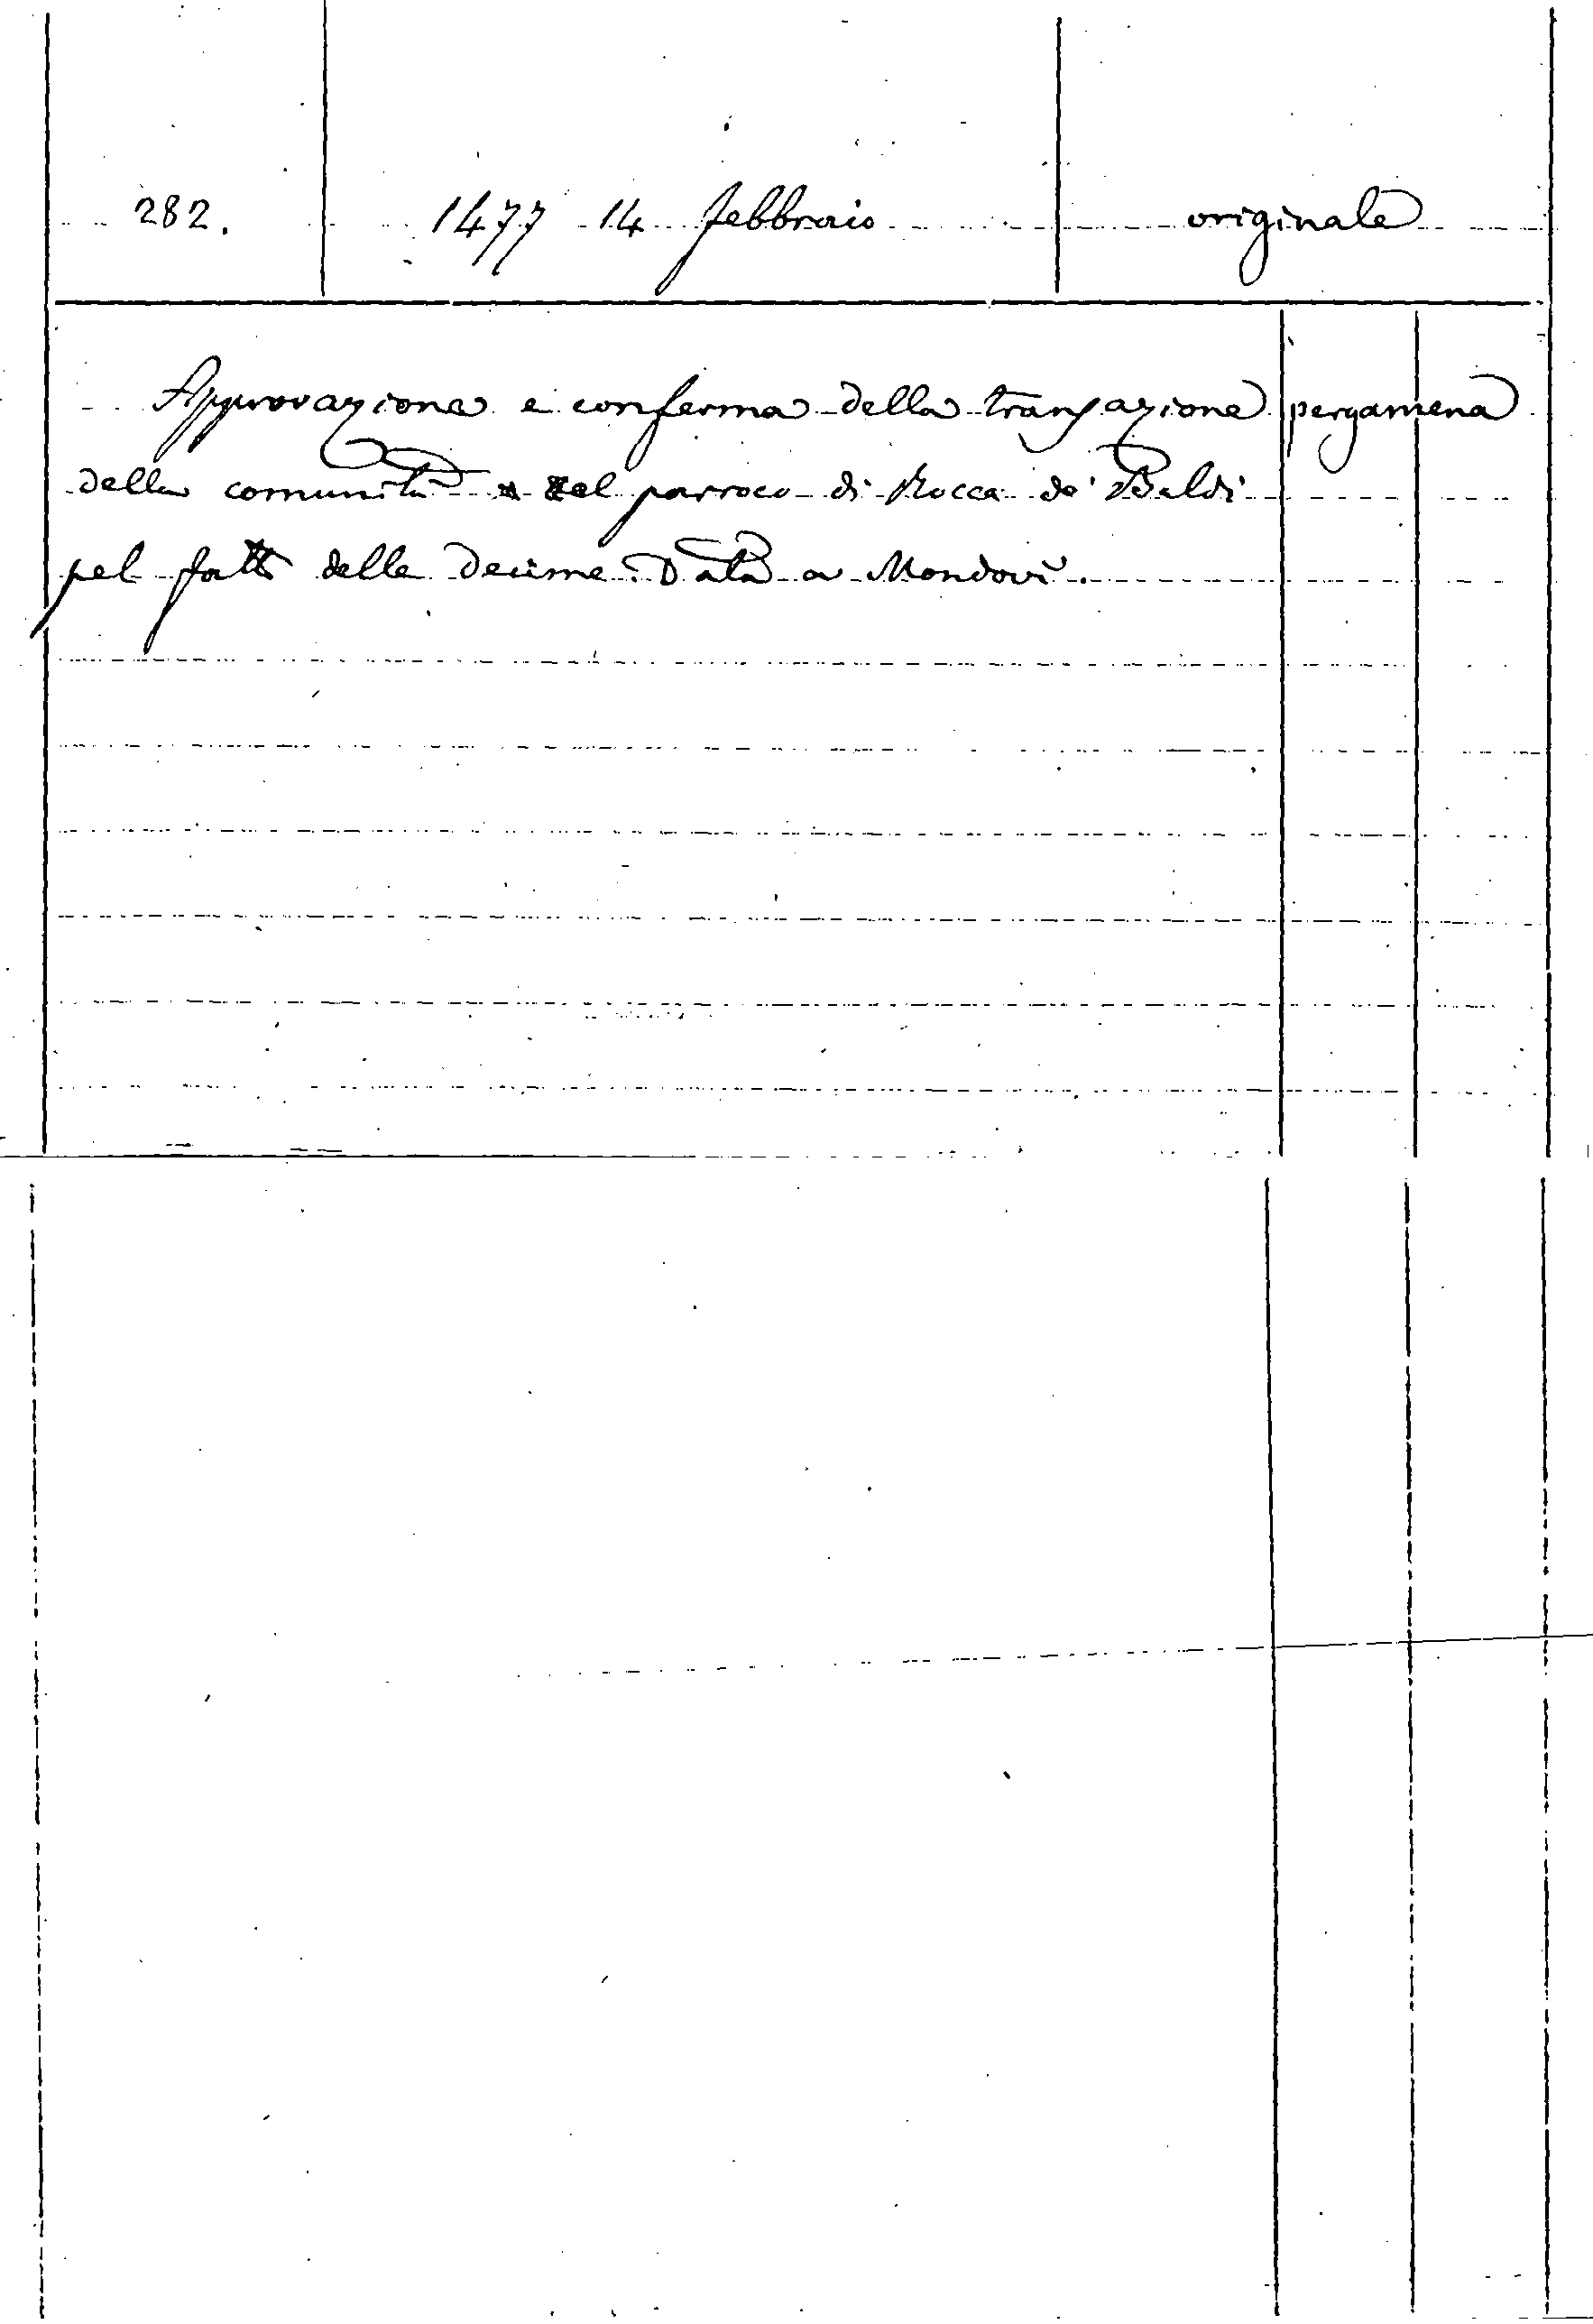 282. 1477 14 febbraio originale
Approvazione e conferma della transazione pergamena
della comunità e del parroco di Rocca de' Baldi
pel fatto delle decime. Data a Mondovì.